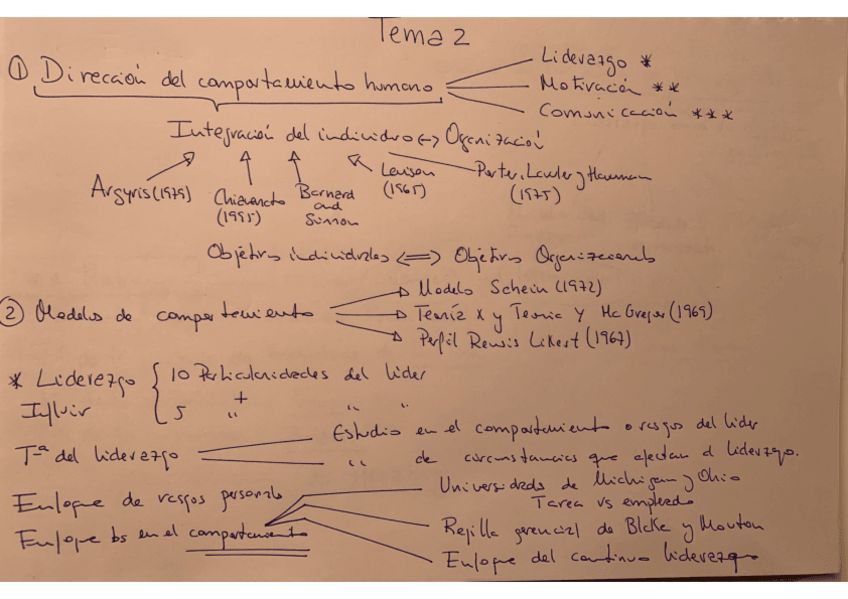 Tema 2
① Dirección del comportamiento humano
Liderazgo *
Motivación * *
Comunicación * * *
Integración del individuo <-> Organización
Argyris (1979)
Chiavenato (1995)
Barnard and Simon
Levison (1965)
Porter, Lawler y Hackman (1975)
Objetivos individuales <=> Objetivos Organizacionales
② Modelos de comportamiento
Modelo Schein (1972)
Teoría X y Teoria Y McGregor (1969)
Perfil Rensis Likert (1967)
* Liderazgo { 10 Particularidades del líder
+
Influir 5 " " "
Tª del liderazgo
Estudio en el comportamiento o rasgos del líder
" de circunstancias que afectan al liderazgo.
Enfoque de rasgos personals
Enfoque bs en el comportamiento
Universidads de Michigan y Ohio
Tarea vs empleado
Rejilla gerencial de Blake y Mouton
Enfoque del continuo liderazgo